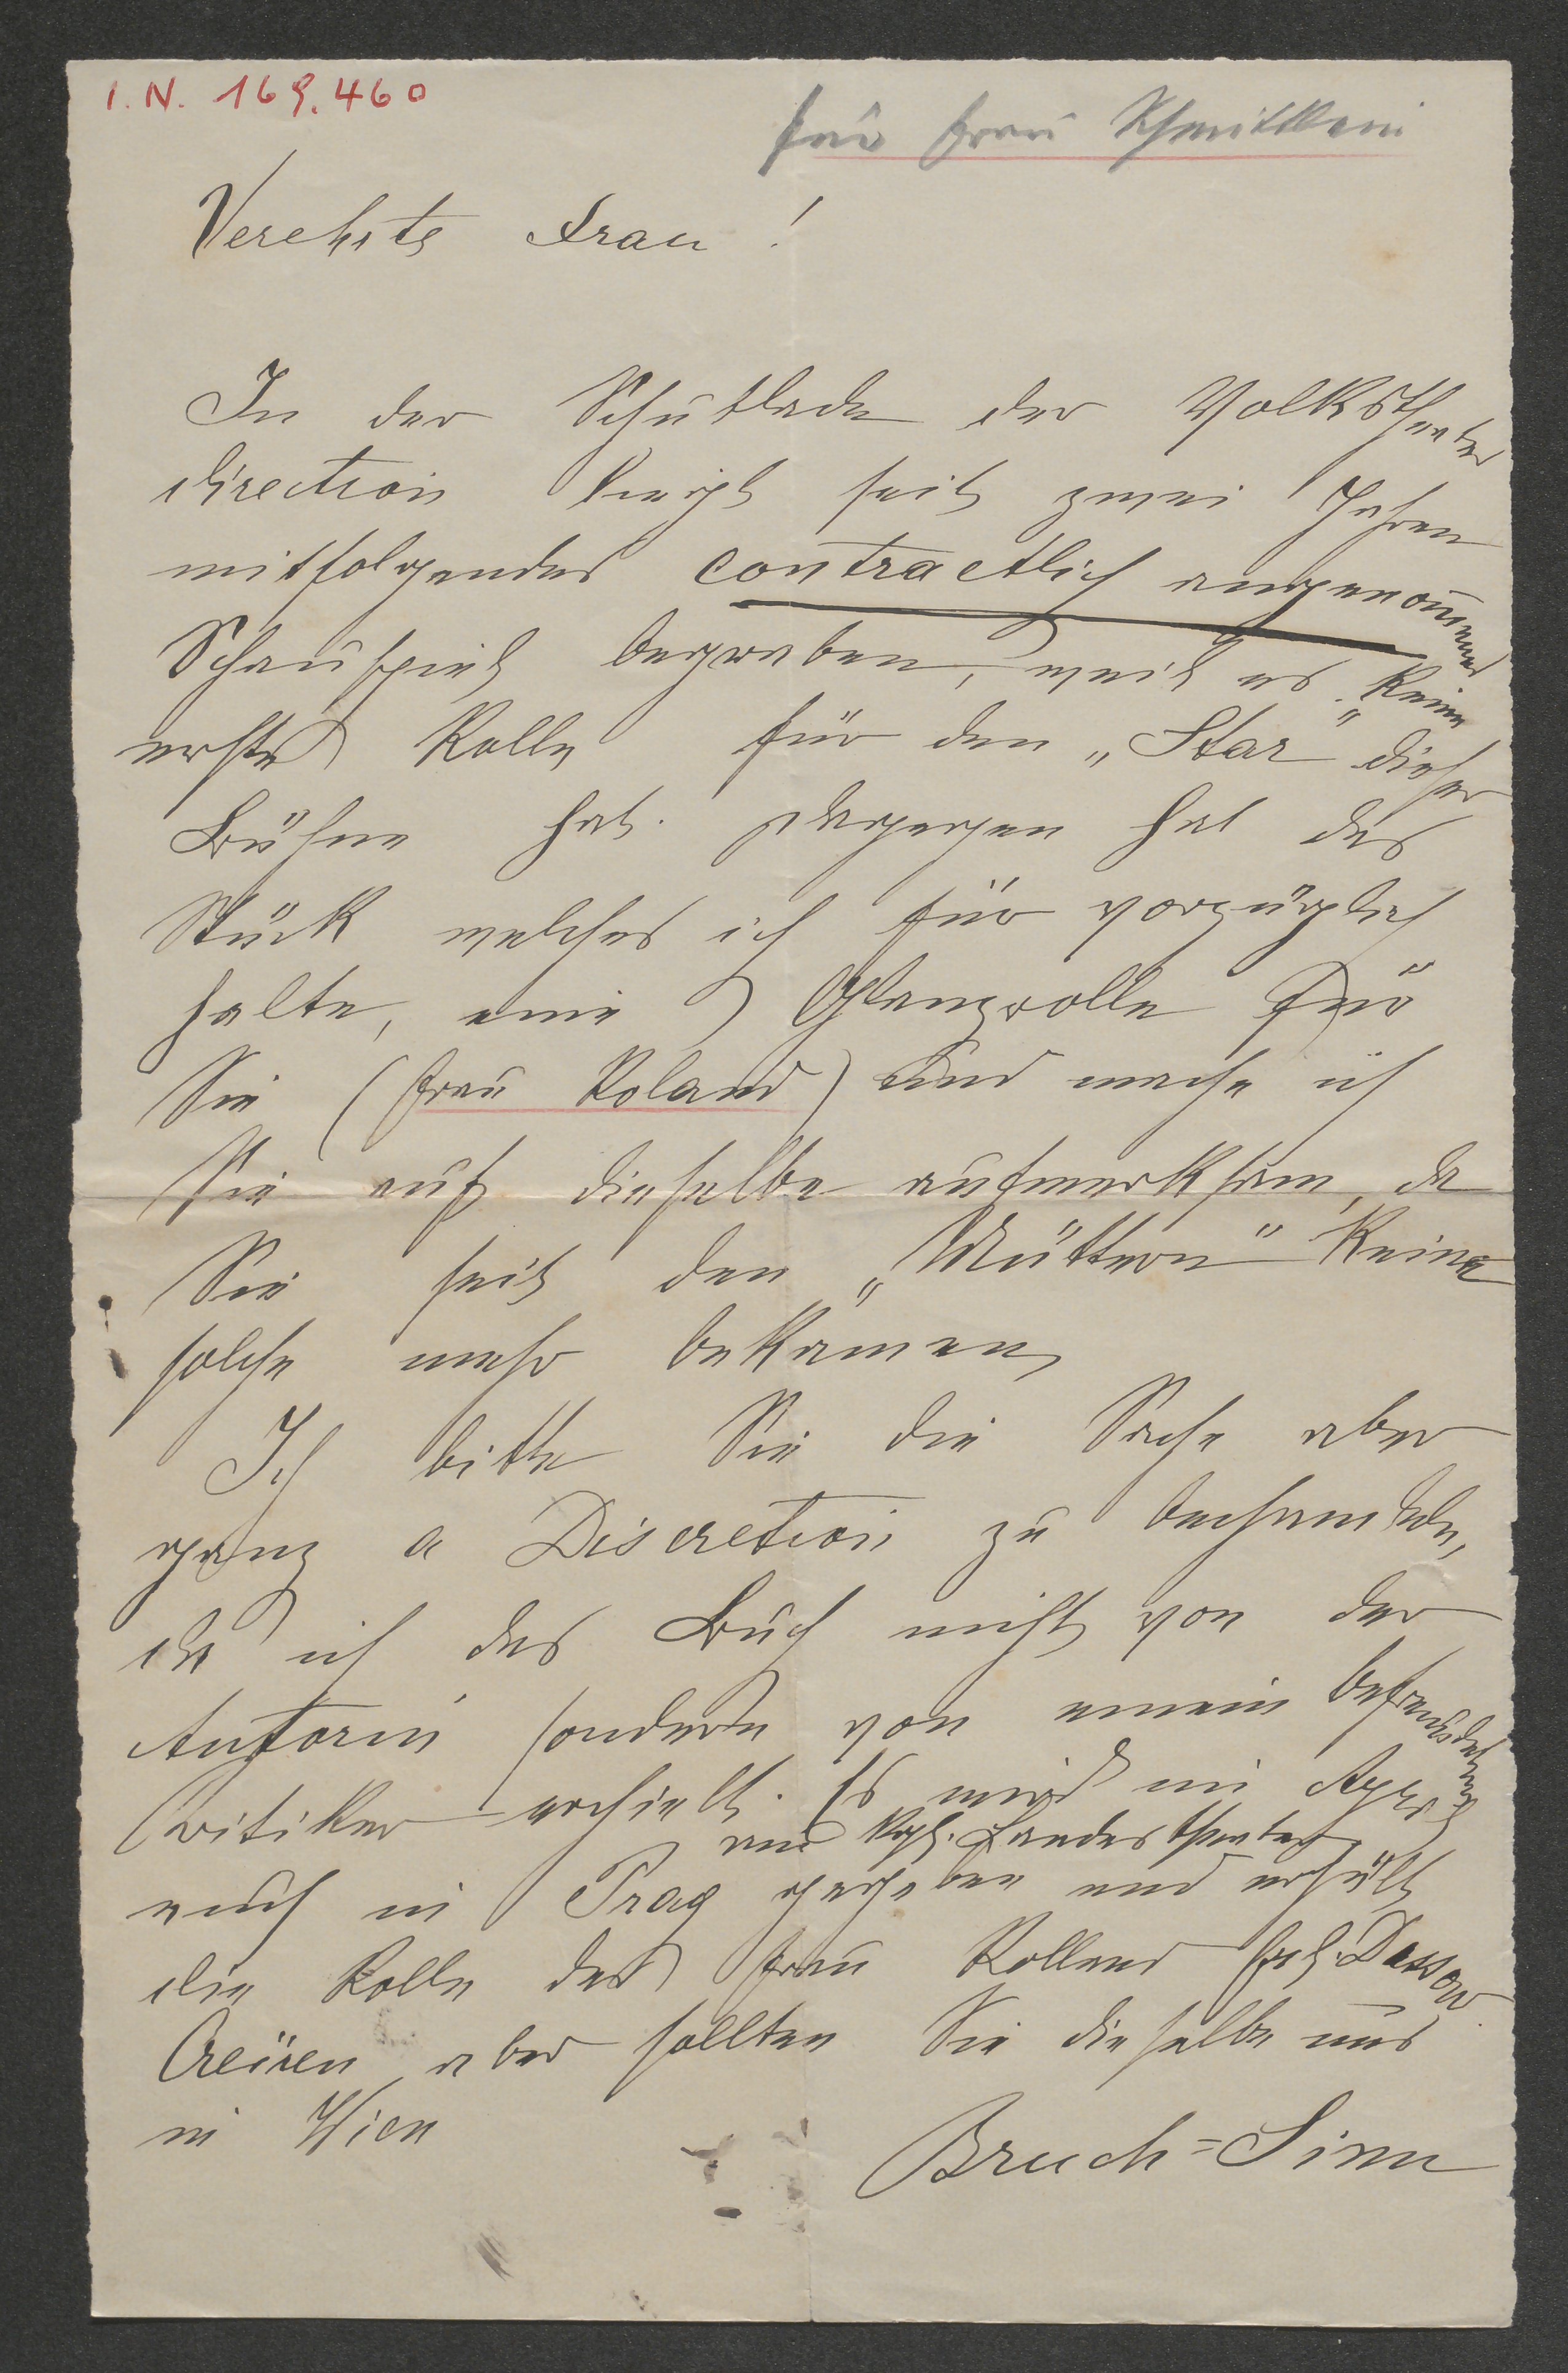 I.N. 169.460
für Frau Schmittlein
Verehrte Frau!
In der Schublade der Volkstheater
direction liegt seit zwei Jahren
mitfolgendes contractlich angenom̅enes
Schauspiel begraben, weil es keine
erste Rolle für den „Star" dieser
Bühne hat. Dagegen hat das
Stück welches ich für vorzüglich
halte, eine Glanzrolle für
Sie (Frau Roland) und mache ich
Sie auf dieselbe aufmerksam, da
Sie seit den „Müttern" keine
solche mehr bekamen,
Ich bitte Sie die Sache aber
ganz a Discretion zu behandeln,
da ich das Buch nicht von der
Autorin sondern von einem befreundeten
Critiker erhielt. Es wird im April
am kgl. Landestheater
auch in Prag gegeben und erhält
die Rolle der Frau Rolland
Creiren aber sollten Sie dieselbe uns
in Wien
Bruch=Sinn